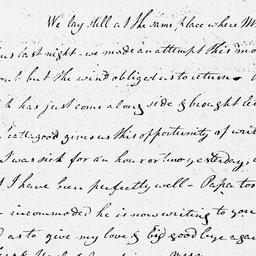 We lay still at the same place where M
us last night - we made an attempt this mo
but the wind obliged us to return -
k has just come along side & brought le
good give us this opportunity of writ
I was sick for an hour or two yesterday,
I have been perfectly well - Papa too
incommoded he is now writing to you
as to give my love & bid good bye again